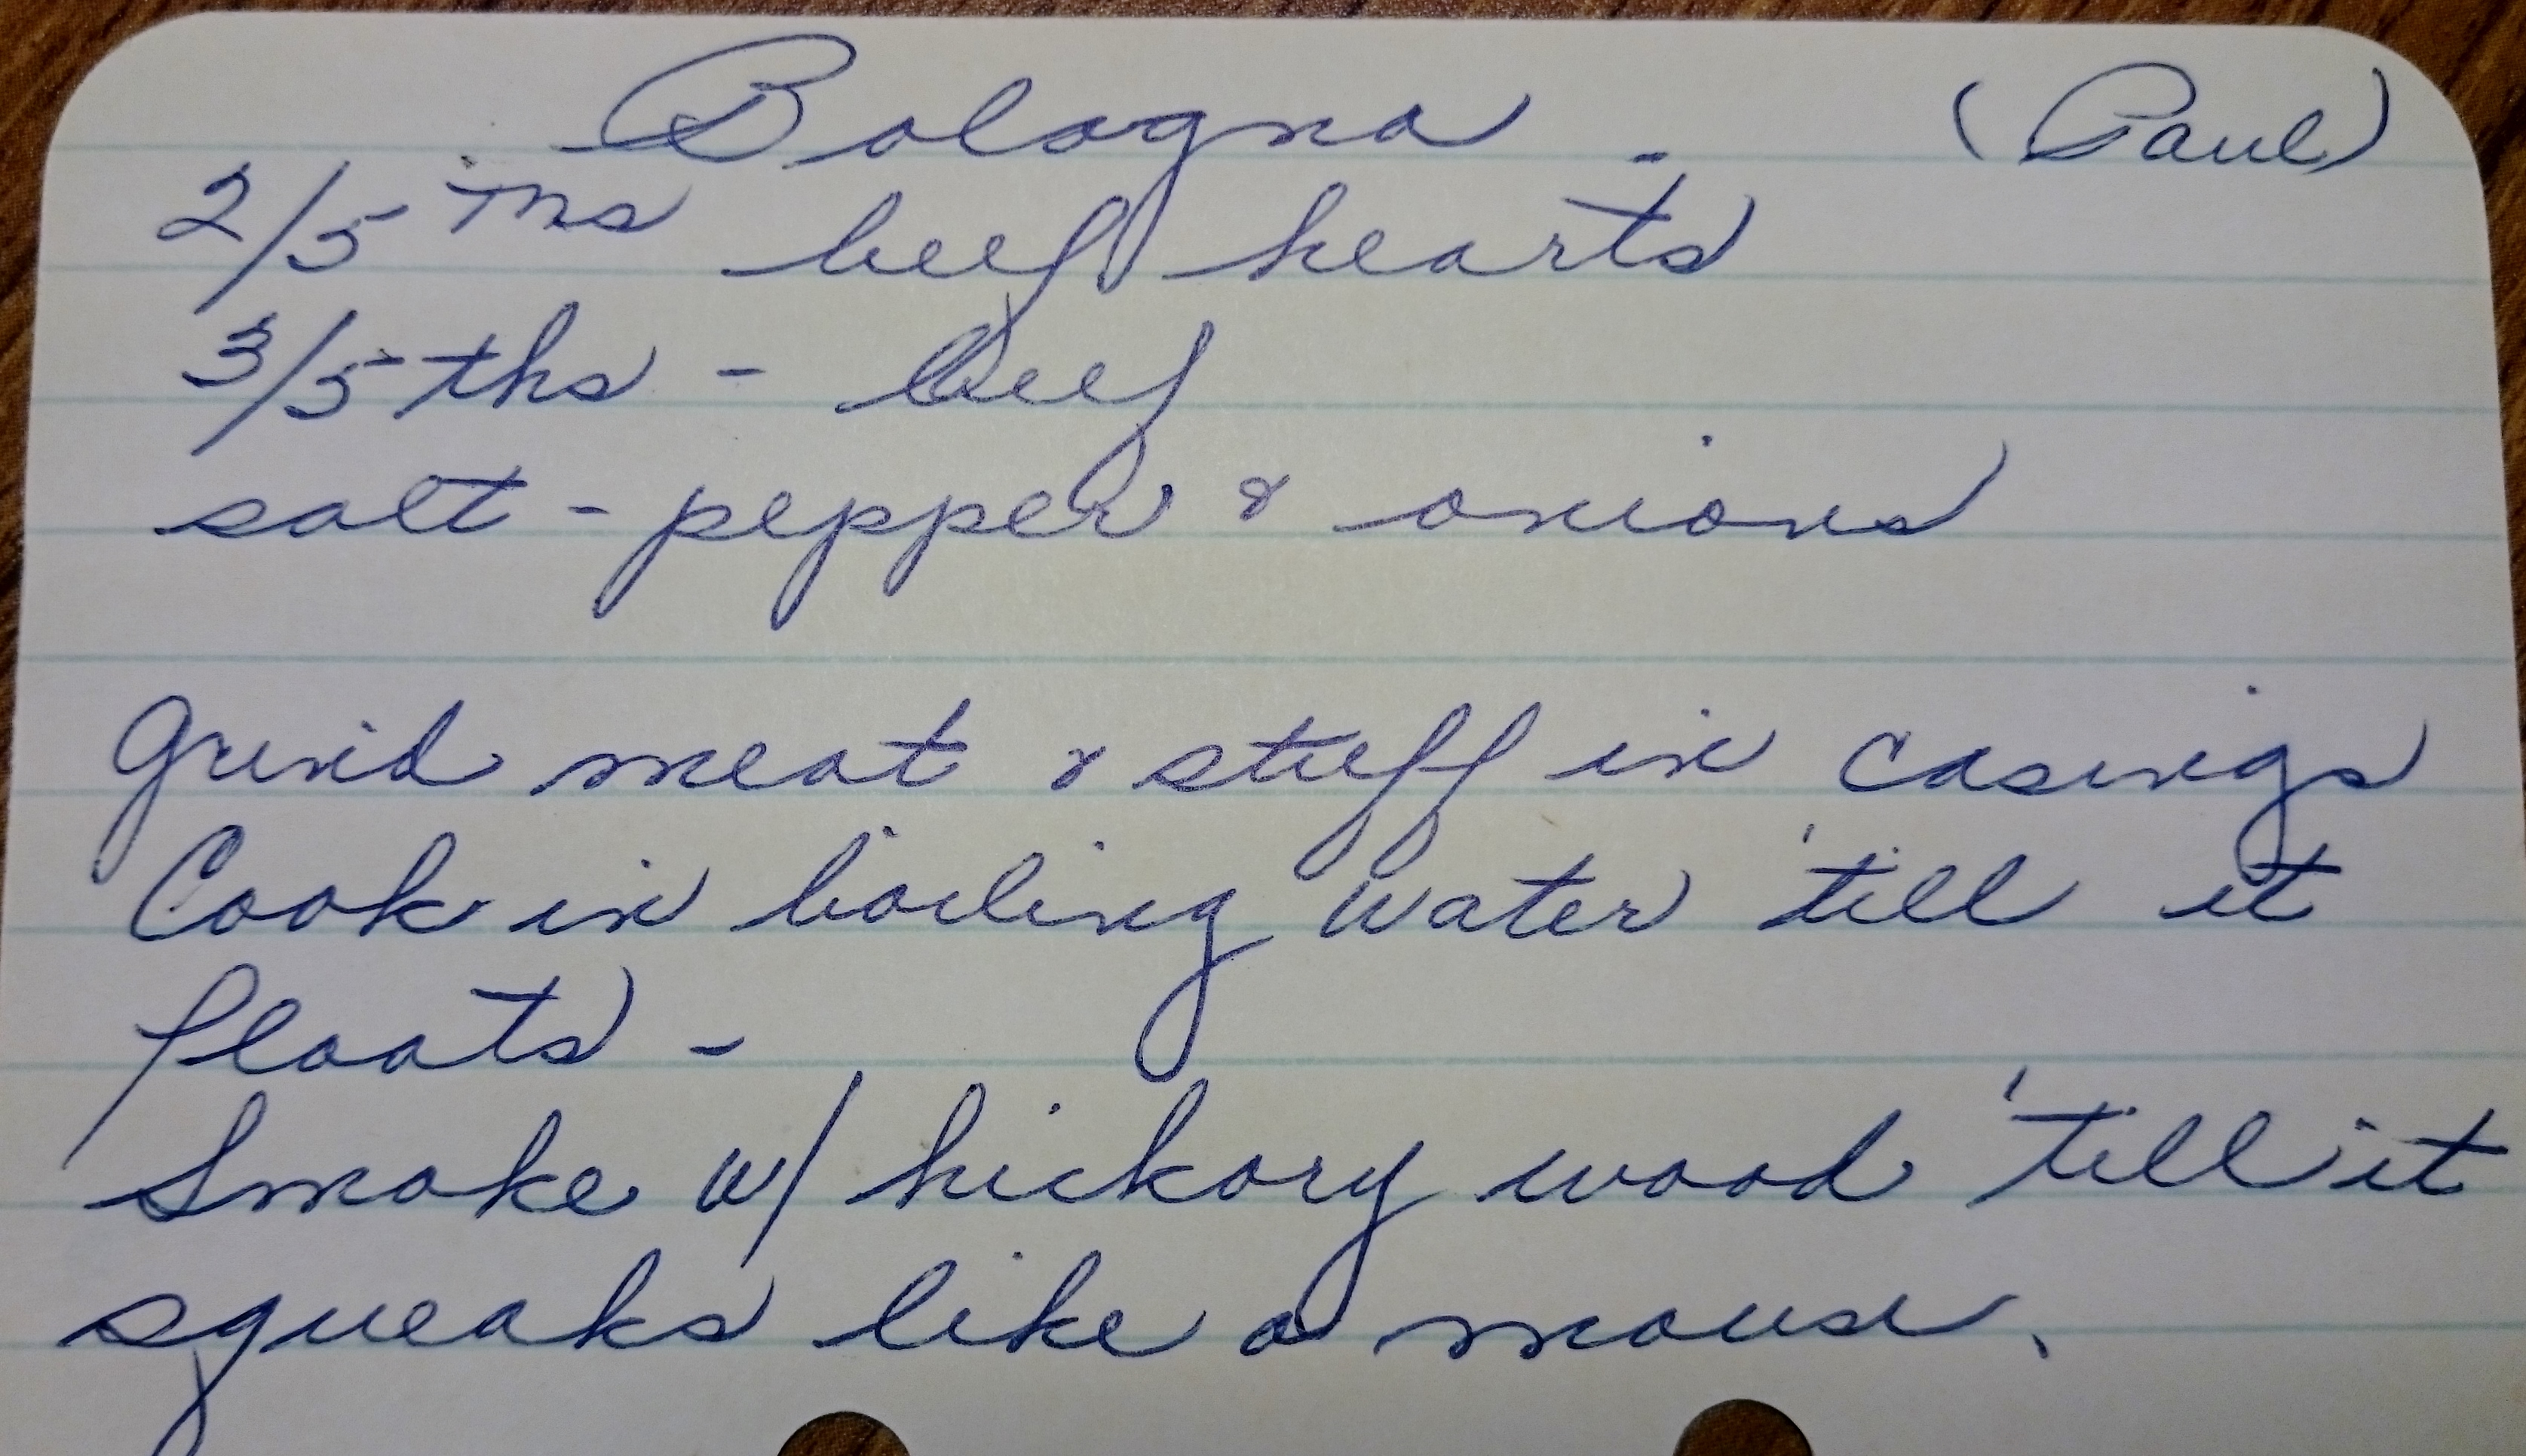 Bologna - (Paul)
2/5ths beef hearts
3/5ths - beef
salt - pepper & onions
Grind meat & stuff in casings
Cook in boiling water 'till it
floats -
Smoke w/ hickory wood 'till it
squeaks like a mouse.